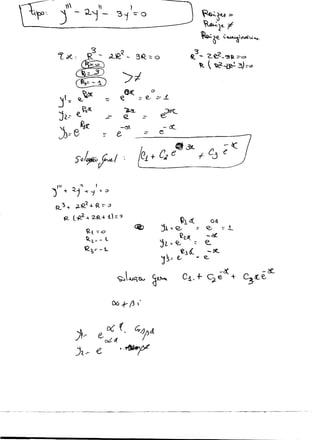 tipo: y''' - 2y'' - 3y' = 0
Raízes =
Raízes ≠
Raízes imaginárias
R³ - 2R² - 3R = 0
R³ - 2R² - 3R = 0
R₁ = 0
R (R² - 2R - 3) = 0
R₂ = 3
R₃ = -1
>≠
y₁ = e^{R₁x} = e^{0x} = e^0 = 1
y₂ = e^{R₂x} = e^{3x} = e^{3x}
y₃ = e^{R₃x} = e^{-x} = e^{-x}
solução geral: C₁ + C₂ e^{3x} + C₃ e^{-x}
y''' + 2y'' + y' = 0
R³ + 2R² + R = 0
R (R² + 2R + 1) = 0
R₁ = 0
R₂ = -1
R₃ = -1
y₁ = e^{R₁x} = e^{0x} = 1
y₂ = e^{R₂x} = e^{-x}
y₃ = e^{R₃x} = e^{-x}
solução geral C₁ + C₂e^{-x} + C₃xe^{-x}
α + βi
y₁ = e^{αx}
y₂ = e^{αx}